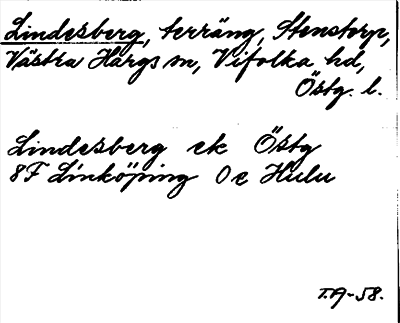 Lindesberg, terräng, Stenstorp,
Västra Hargs sn, Vifolka hd,
Östg. l.
Lindesberg ek Östg
8F Linköping 0e Hulu
T.A-58.